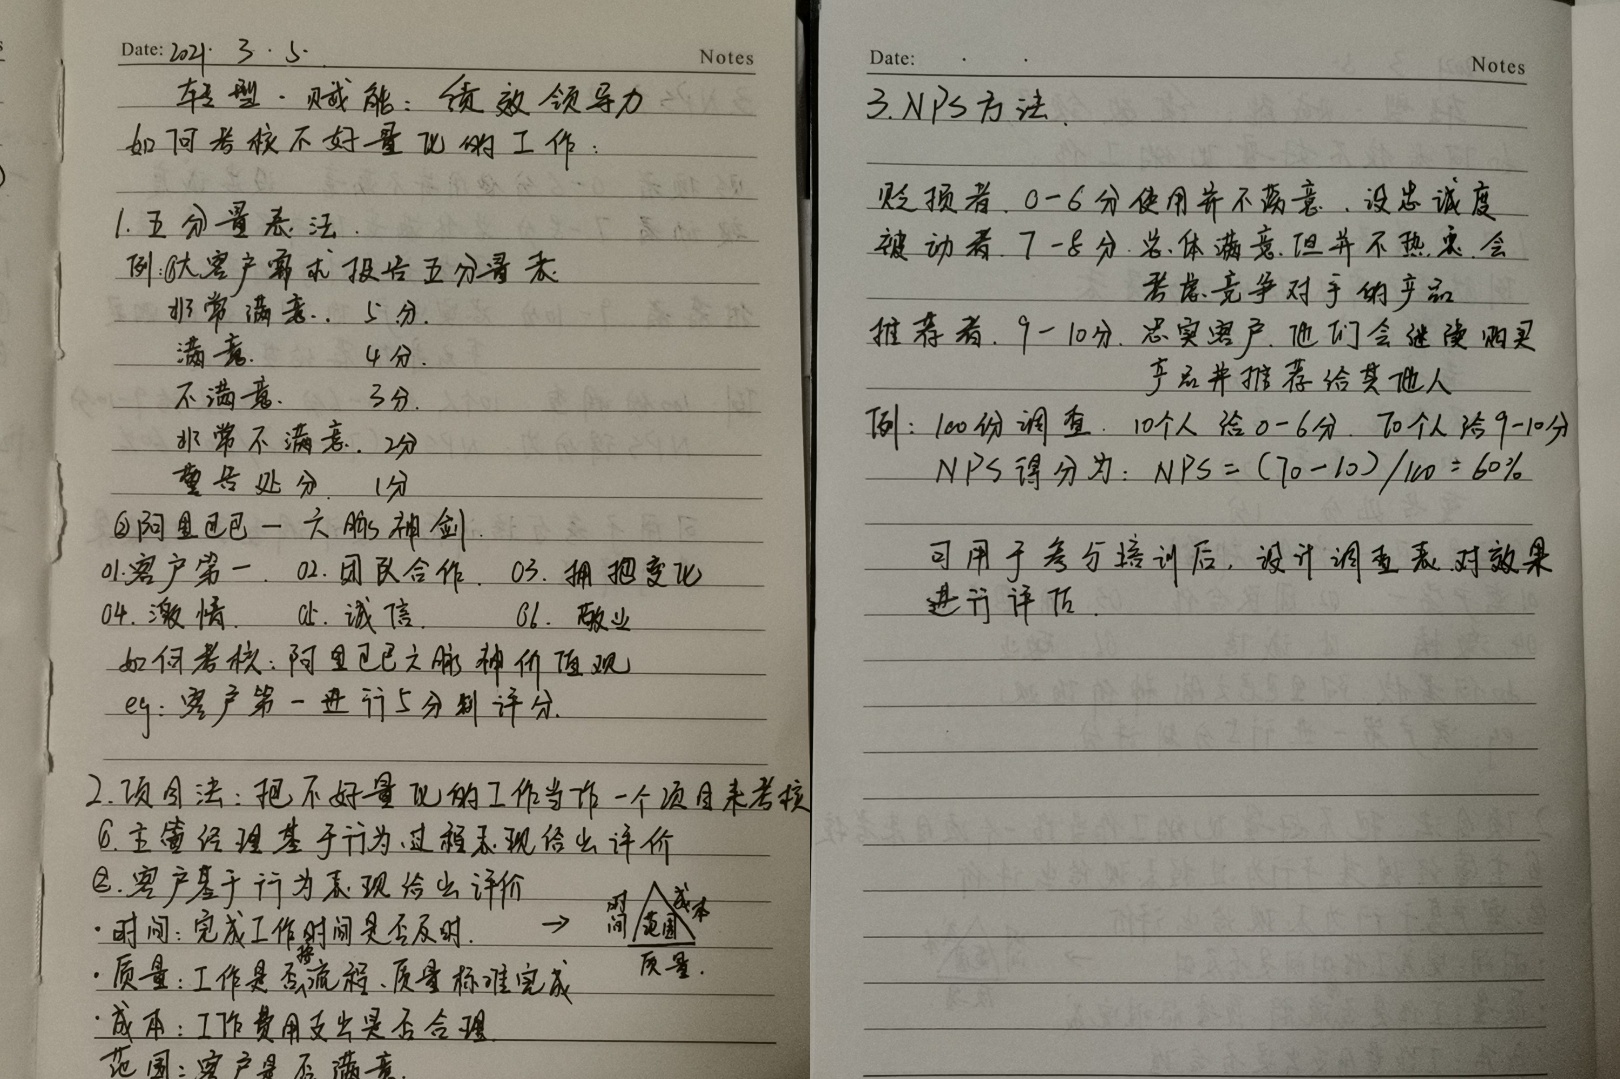 Date: 2021. 3. 5.
Notes
转型·赋能：绩效领导力
如何考核不好量化的工作：
1.五分量表法.
例:①大客户需求报告五分量表
非常满意. 5分.
满意. 4分.
不满意. 3分.
非常不满意. 2分
警告处分. 1分
②阿里巴巴一六脉神剑.
01.客户第一. 02.团队合作. 03.拥抱变化
04.激情. 05.诚信. 06.敬业
如何考核：阿里巴巴六脉神价值观
eg：客户第一进行5分制评分.
2.项目法：把不好量化的工作当作一个项目来考核
①.主管经理基于行为、过程表现给出评价
②.客户基于行为表现给出评价
·时间：完成工作时间是否及时. →
时间 成本
范围
质量.
·质量：工作是否按流程、质量标准完成
·成本：工作费用支出是否合理
范围：客户是否满意.
Date: . .
Notes
3.NPS方法.
贬损者.0-6分使用并不满意、没忠诚度
被动者.7-8分.总体满意.但并不热衷.会
考虑竞争对手的产品
推荐者.9-10分.忠实客户.他们会继续购买
产品并推荐给其他人
例：100份调查.10个人给0-6分.70个人给9-10分
NPS得分为：NPS=(70-10)/100=60%
可用于参与培训后，设计调查表.对效果
进行评估.